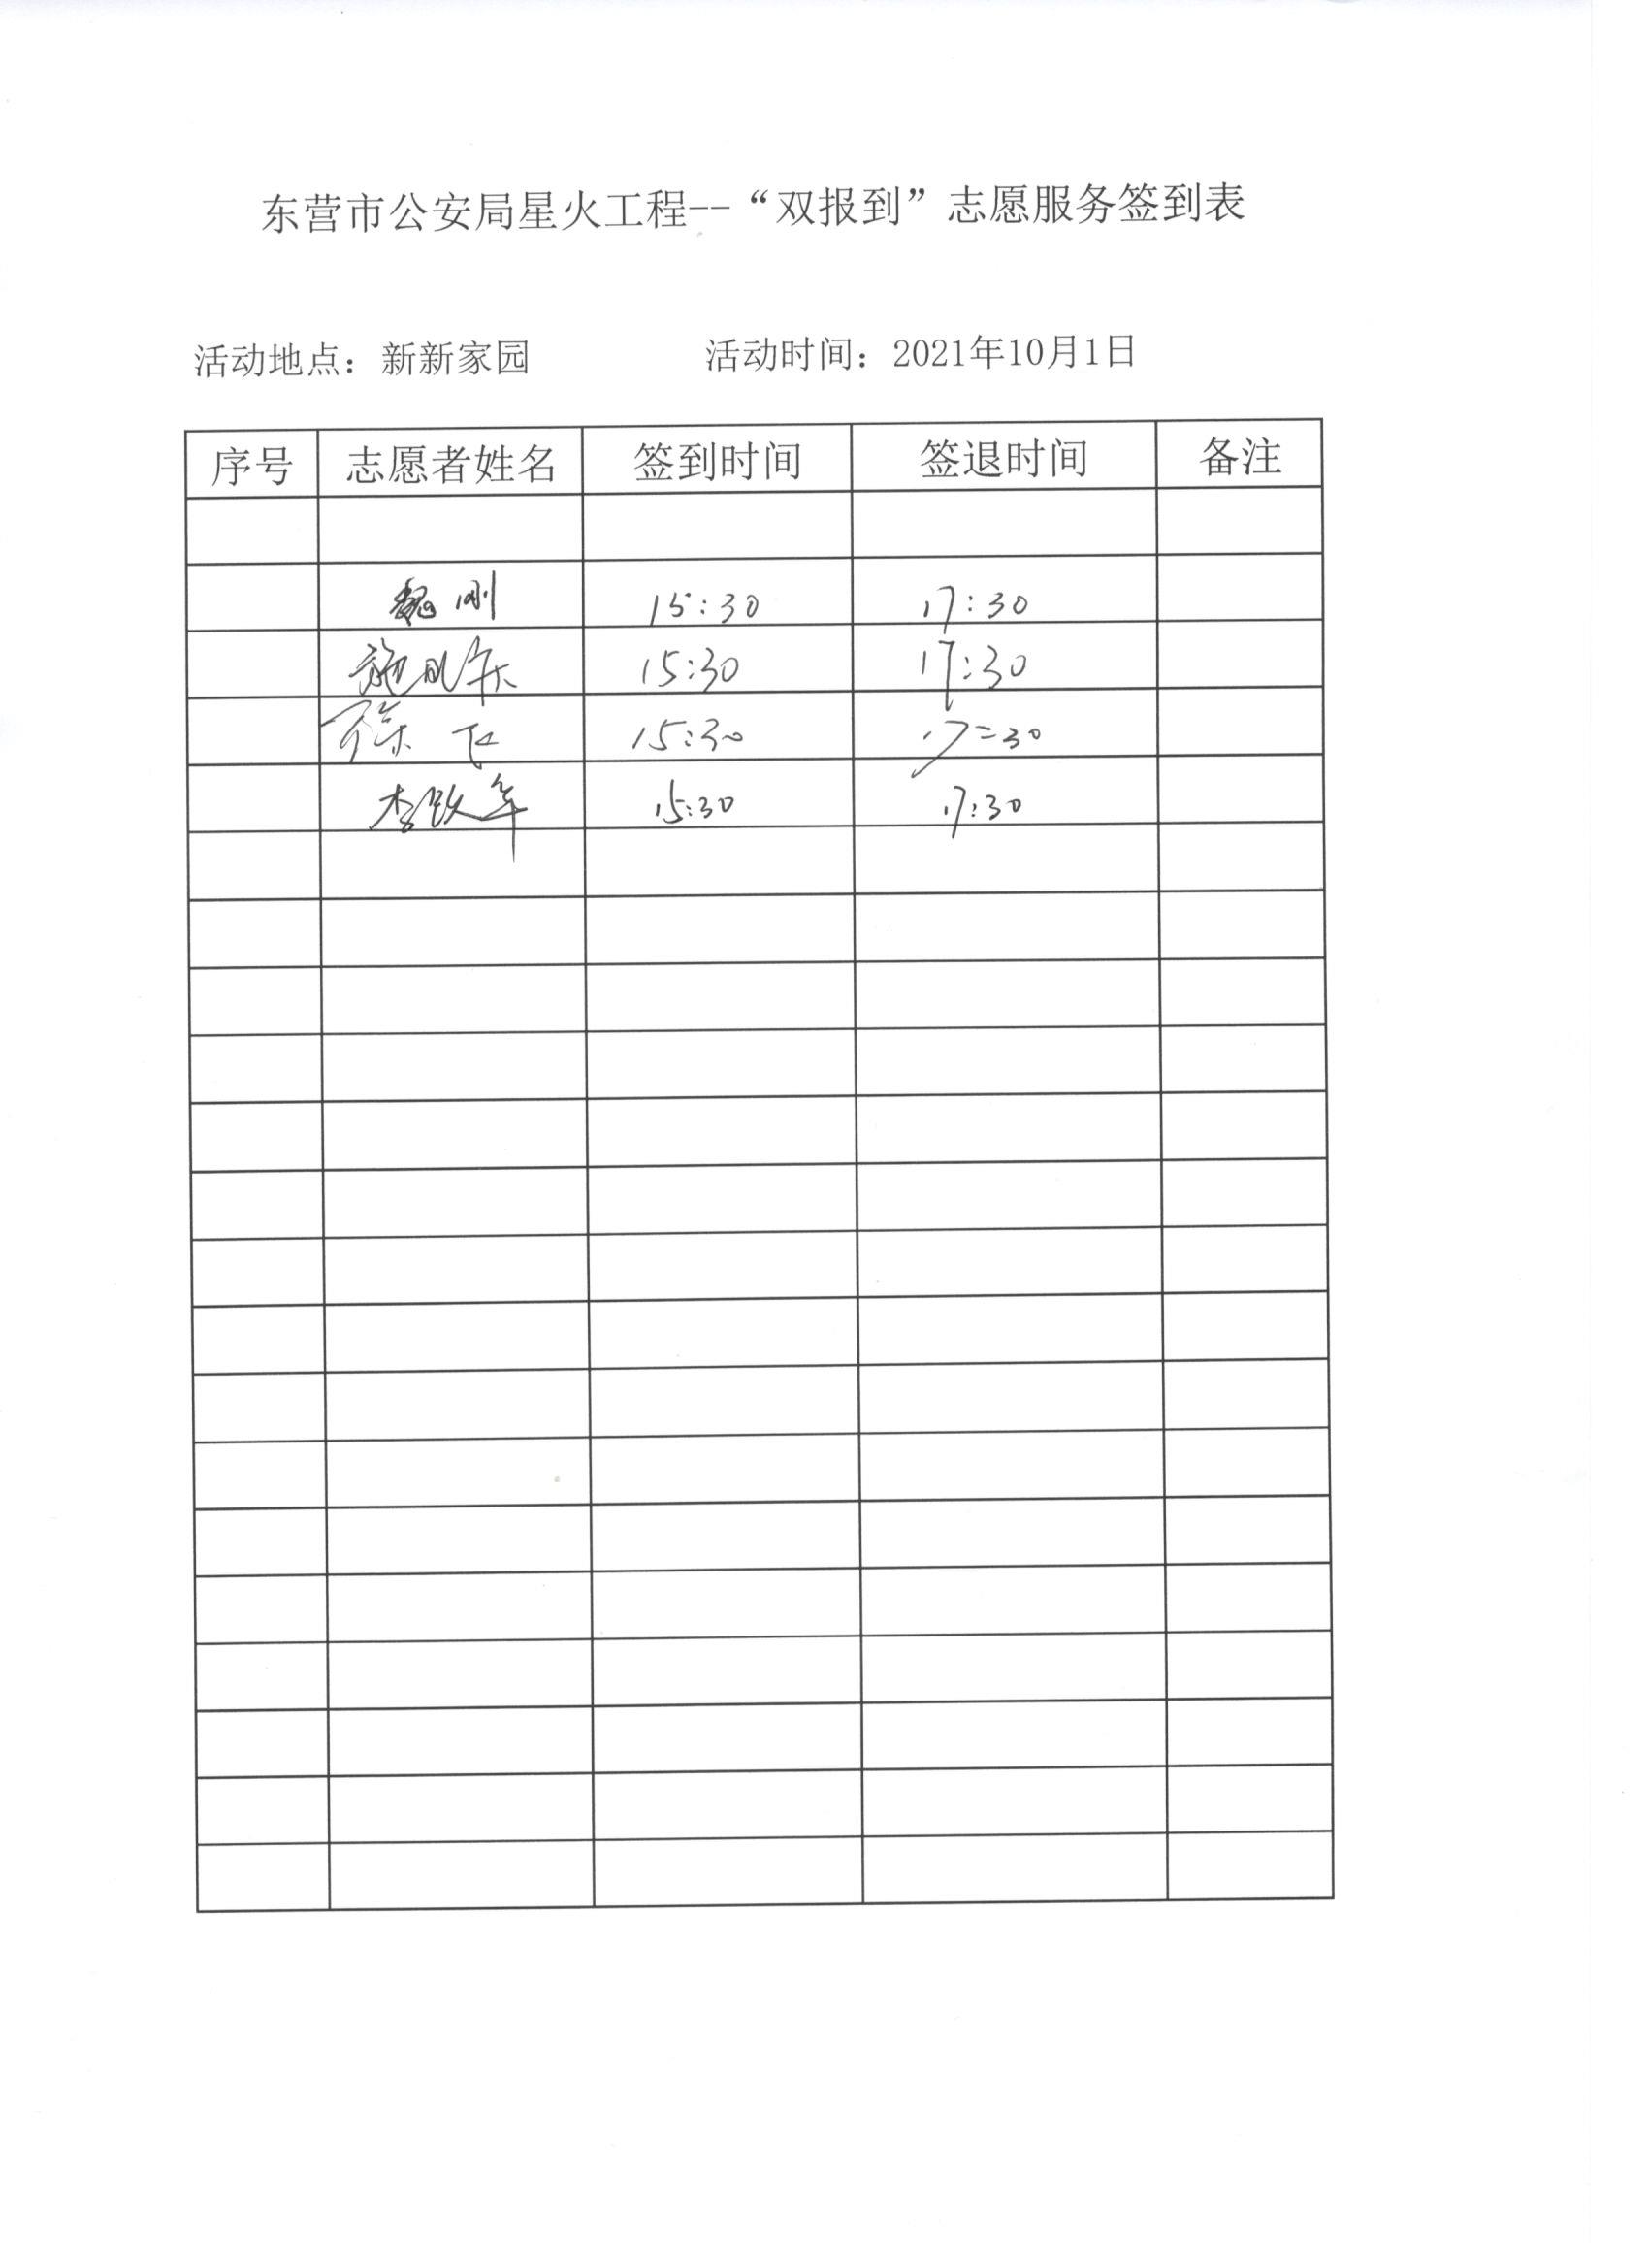 东营市公安局星火工程--“双报到”志愿服务签到表
活动地点：新新家园 活动时间：2021年10月1日
序号 志愿者姓名 签到时间 签退时间 备注
魏刚 15:30 17:30
15:30 17:30
徐飞 15:30 17:30
李跃军 15:30 17:30